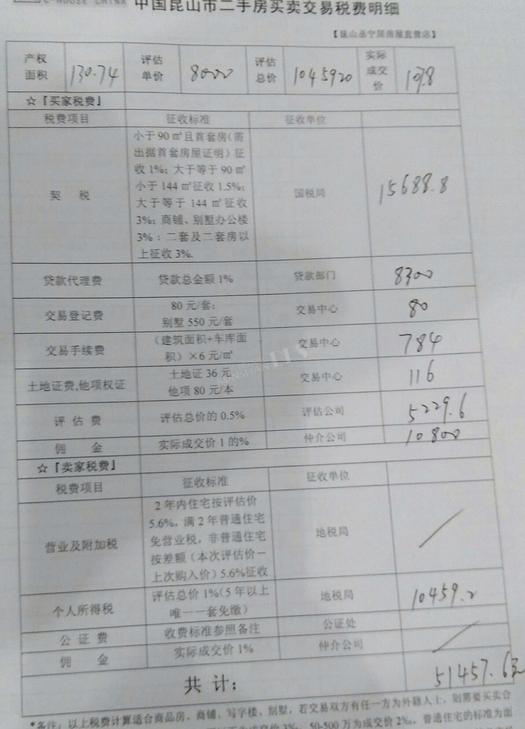 C-HOUSE CHINA
中国昆山市二手房买卖交易税费明细
产权面积 130.74 评估单价 8000 评估总价 1045920 实际成交价 107.8
☆『买家税费』
税费项目 征收标准 征收单位
小于 90 ㎡且首套房(需
出据首套房屋证明)征
收 1%; 大于等于 90 ㎡
小于 144 ㎡征收 1.5%;
契 税 国税局 15688.8
大于等于 144 ㎡征收
3%; 商铺、别墅办公楼
3%; 二套及二套房以
上征收 3%.
贷款代理费 贷款总金额 1% 贷款部门 8300
交易登记费 80 元/套; 别墅 550 元/套 交易中心 80
交易手续费 (建筑面积+车库面积)×6 元/㎡ 交易中心 784
土地证费,他项权证 土地证 36 元 他项 80 元/本 交易中心 116
评 估 费 评估总价的 0.5% 评估公司 5229.6
佣 金 实际成交价 1 的% 仲介公司 10800
☆『卖家税费』
税费项目 征收标准 征收单位
2 年内住宅按评估价
5.6%, 满 2 年普通住宅
营业及附加税 免营业税, 非普通住宅 地税局
按差额(本次评估价一
上次购入价)5.6%征收
个人所得税 评估总价 1%(5 年以上唯一一套免缴) 地税局 10459.2
公 证 费 收费标准参照备注 公证处
佣 金 实际成交价 1% 仲介公司
共 计: 51457.6
*备注: 以上税费计算适合商品房、商铺、写字楼、别墅, 若交易双方有任一方为外籍人士, 则需要买卖合
50-500 万为成交价 2‰, 普通住宅的标准为面